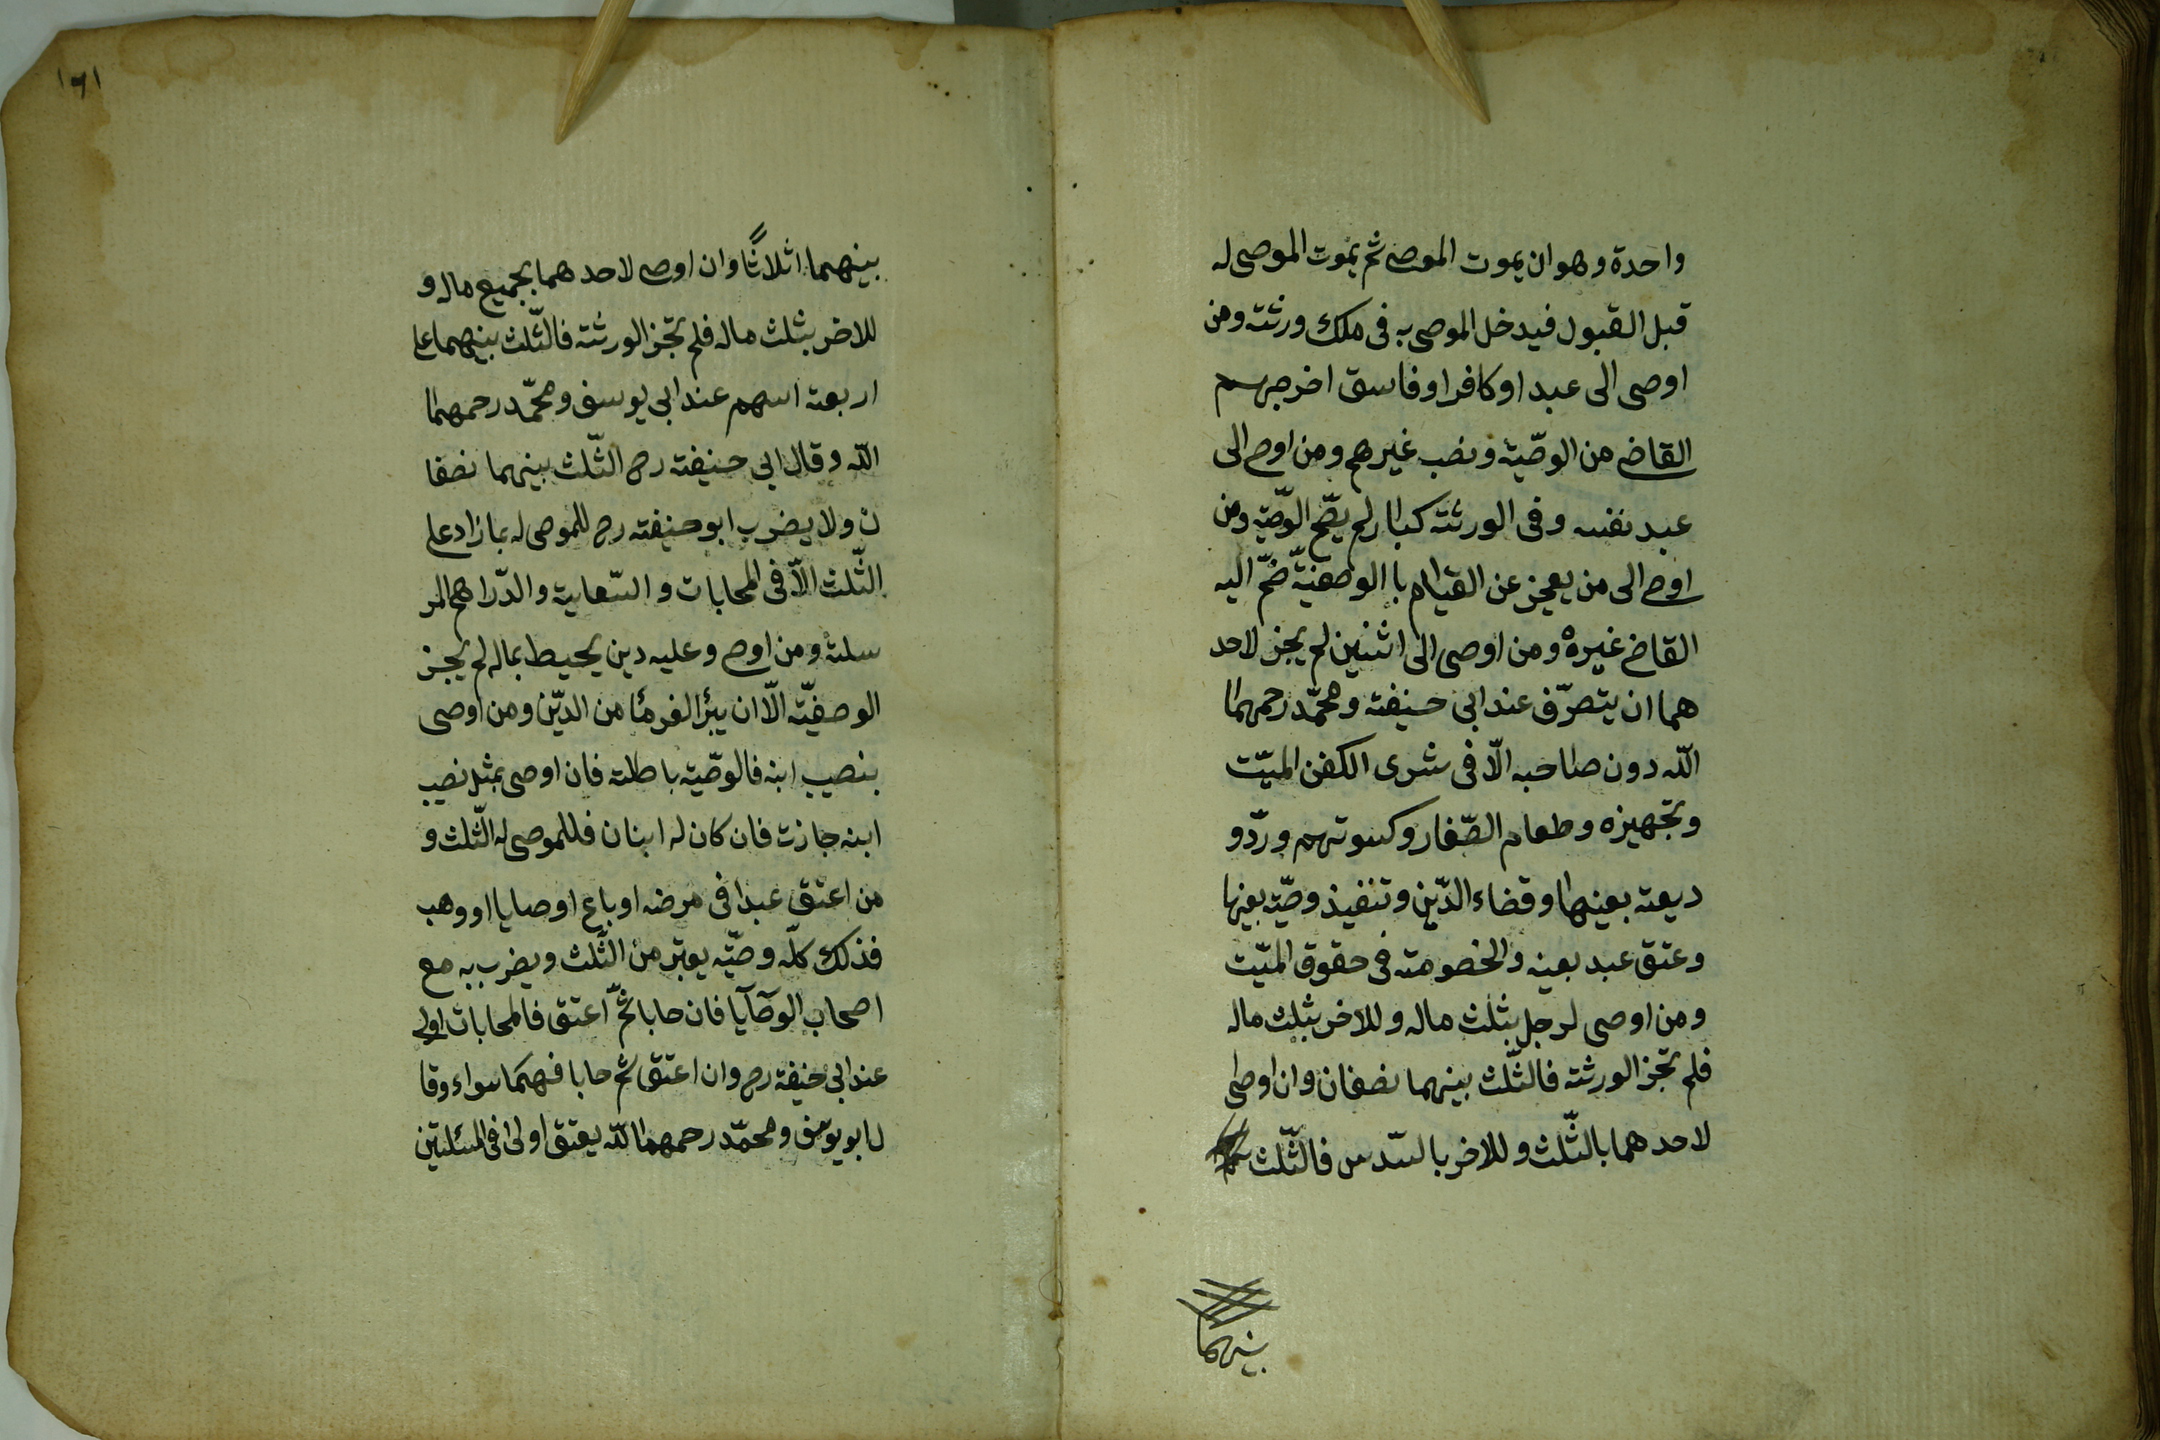 واحدة وهو ان يموت الموصى ثم يموت الموصى له
قبل القبول فيدخل الموصى به فى ملك ورثته ومن
اوصى الى عبد او كافر او فاسق اخرجهم
القاضى من الوصّية ونصب غيرهم ومن اوصى الى
عبد نفسه وفى الورثة كبار لم يصّح الوصّية ومن
اوصى الى من يعجز عن القيام با الوصفيّة ضّم اليه
القاضى غيره ومن اوصى الى اثنين لم يجز لاحد
هما ان يتصرّف عند ابى حنيفة ومحمّد رحمهما
اللّه دون صاحبه الّا فى شرى الكفن الميّت
وتجهيزه وطعام الصّغار وكسوتهم وردّ و
ديعة بعينها وقضاء الدّين وتنفيذ وصيّة بعينها
وعتق عبد بعينه والخصومة فى حقوق الميّت
ومن اوصى لرجل بثلث ماله وللاخر بثلث ماله
فلم تجز الورثة فالثّلث بينهما نصفان وان اوصى
لاحدهما بالثّلث وللاخر بالسّدس فالثّلث
بينهما
١٦١
بينهما اثلاثًا وان اوصى لاحدهما بجميع ماله و
للاخر بثلث ماله فلم تجز الورثة فالثّلث بينهما على
اربعة اسهم عند ابى يوسف ومحمّد رحمهما
اللّه وقال ابى حنيفة رح الثّلث بينهما نصفا
ن ولا يضرب ابو حنيفة رح للموصى له بما زاد على
الثّلث الّا فى المحابات والسّعاية والدّراهم المر
سلة ومن اوصى وعليه دين يحيط بماله لم يجز
الوصفيّة الّا ان يبرأ الغرمأ من الديّن ومن اوصى
بنصيب ابنه فالوصّية باطلة فان اوصى بمثل نصيب
ابنه جازت فان كان له ابنان فللموصى له الثّلث و
من اعتق عبدا فى مرضه او باع او صايا او وهب
فذلك كلّه وصيّة يعتبر من الثّلث ويضرب به مع
اصحاب الوصآيا فان حابا ثمّ اعتق فالمحابات اولى
عند ابى حنيفة رح وان اعتق ثم حابا فهما سواء وقا
ل ابو يوسف ومحمّد رحمهما اللّه يعتق اولى فى المسئلتين